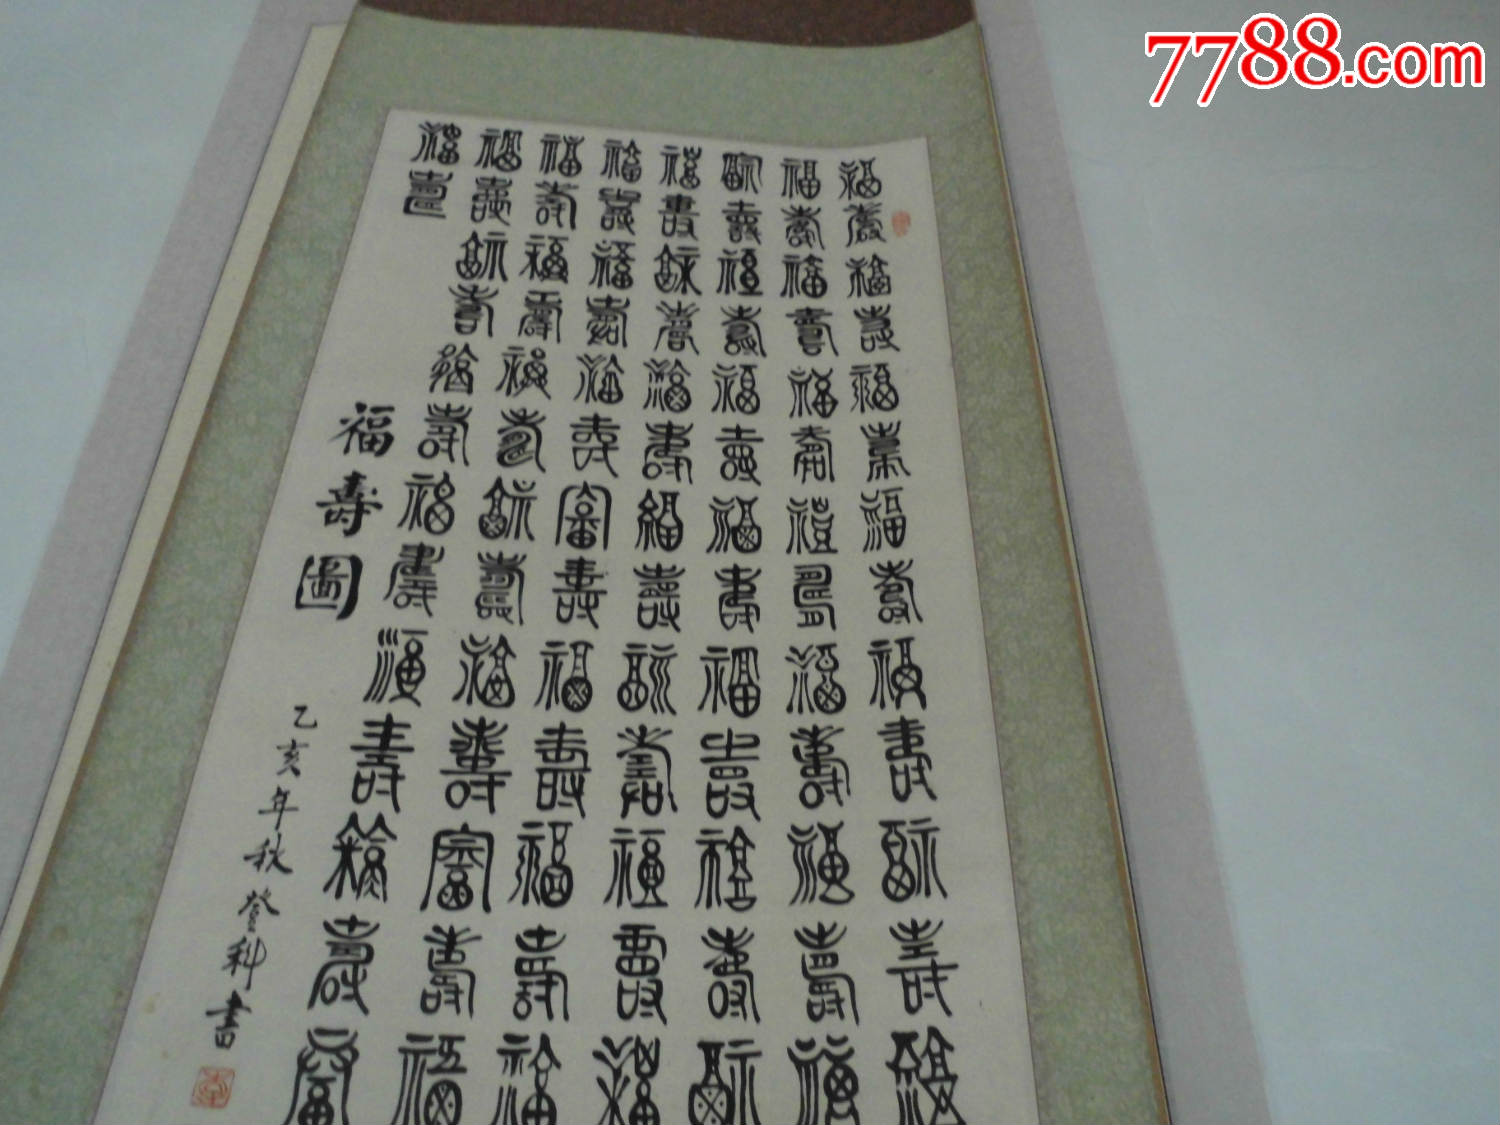 7788.com
福壽福壽福壽福壽福壽福壽福
福壽福壽福壽福壽福壽福壽福
福壽福壽福壽福壽福壽福壽福
福壽福壽福壽福壽福壽福壽福
福壽福壽福壽福壽福壽福壽福
福壽福壽福壽福壽福壽福壽福
福壽福壽福壽福壽福壽福壽福
福壽
福壽圖
乙亥年秋登科書